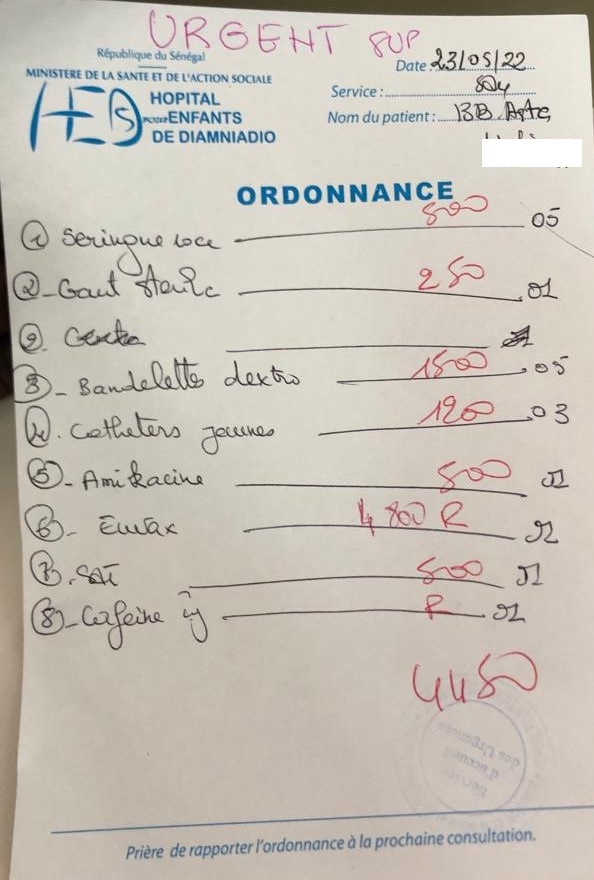 URGENT SUP
République du Sénégal
MINISTERE DE LA SANTE ET DE L'ACTION SOCIALE
HOPITAL
pour ENFANTS
DE DIAMNIADIO
Date : 23/05/22
Service :
Nom du patient : BB. Asta
ORDONNANCE
① Seringue 10cc 500 05
② - Gant Sterile 250 01
③ - Bandelettes dextro 1500 05
④. Catheters jaunes 1200 03
⑤ - Amikacine 500 01
⑥ - 4800 R 01
⑦. 500 01
⑧ - Cafeine inj R 01
4450
Service
d'accueil
des Urgences
Prière de rapporter l'ordonnance à la prochaine consultation.